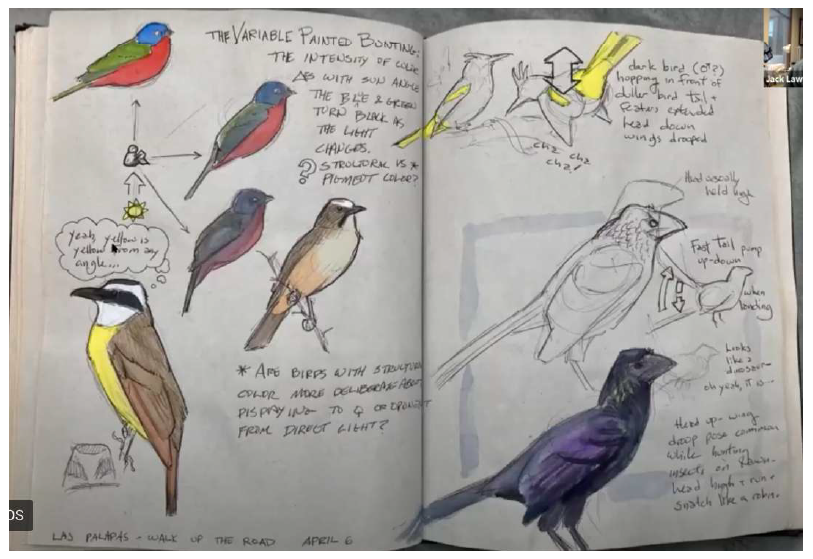 THE VARIABLE PAINTED BUNTING:
THE INTENSITY OF COLOR
Δs WITH SUN ANGLE
THE BLUE & GREEN
TURN BLACK AS
THE LIGHT
CHANGES.
? STRUCTURAL VS *
PIGMENT COLOR?
yeah, yellow is
yellow from any
angle...
* ARE BIRDS WITH STRUCTURAL
COLOR MORE DELIBERATE ABOUT
DISPLAYING TO ♀ OR OPONENT
FROM DIRECT LIGHT?
LAS PALAPAS - WALK UP THE ROAD APRIL 6
dark bird (♂?)
hopping in front of
duller bird tail +
feathers extended
head down
wings drooped
chz chz
chz!
Head usually
held high
Fast Tail pump
up-down
when
landing
Looks
like a
dinosaur
oh yeah, it is
Head up - wing
droop pose common
while hunting
insects on
head high + run +
snatch like a robin.
Jack Law
OS